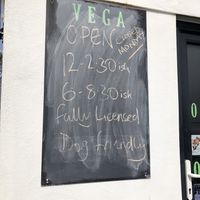 VEGA
OPEN CLOSED MONDAY
12-2.30ish
6-8.30ish
Fully Licensed
Dog friendly